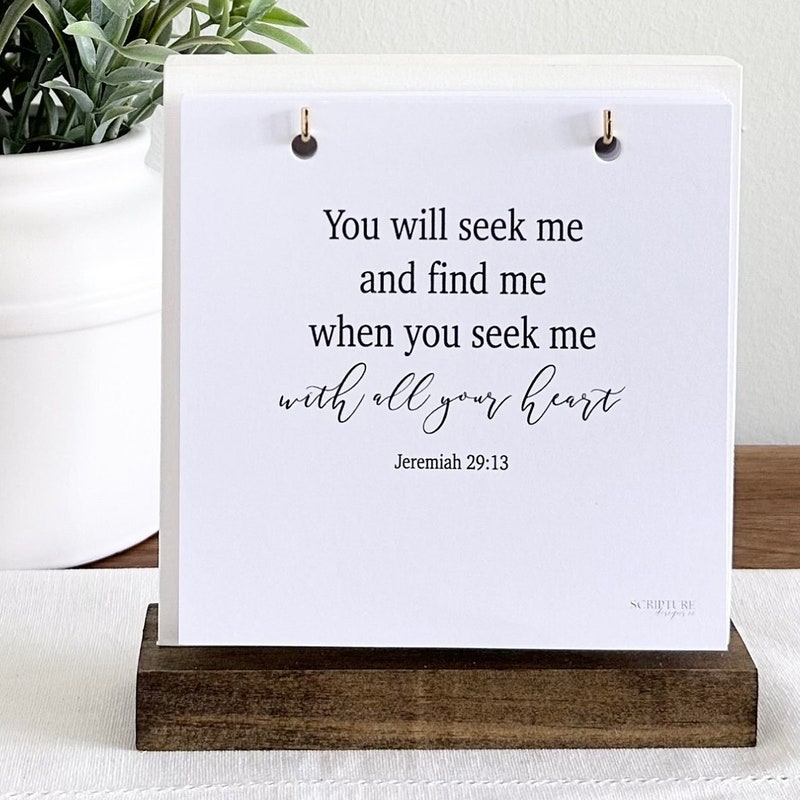 You will seek me
and find me
when you seek me
with all your heart
Jeremiah 29:13
SCRIPTURE
designs co